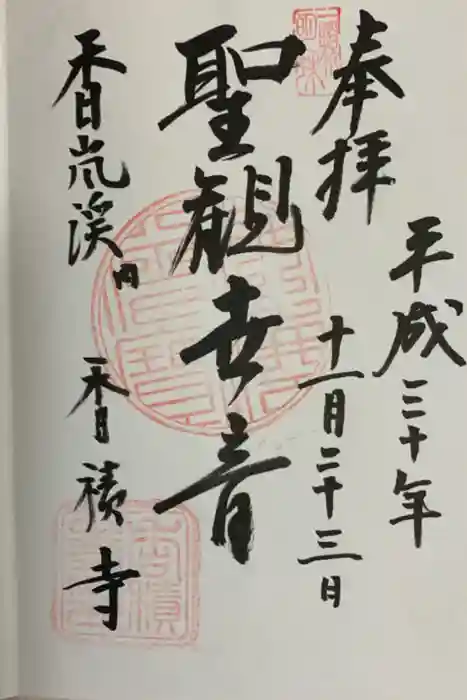 奉拝
平成三十年
十一月二十三日
聖観世音
香嵐渓内
香積寺